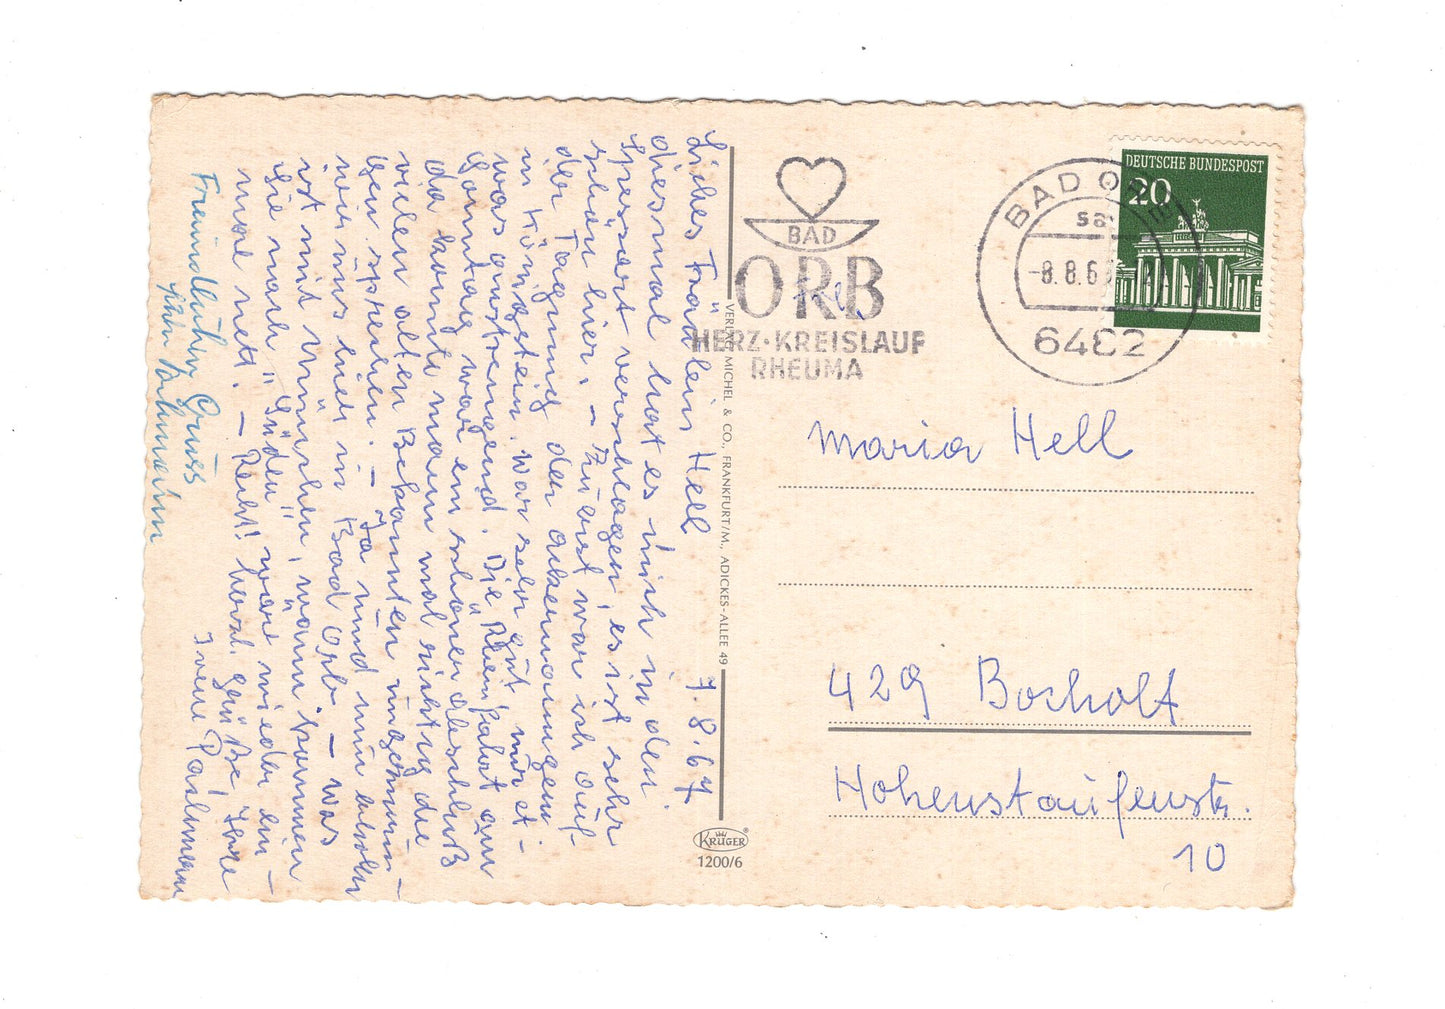 7.8.67
Liebes Fräulein Hell
diesmal hat es mich in den
Spessart verschlagen, es ist sehr
schön hier. – Zuerst war ich auf
der Tagung der
in Königstein. war sehr gut, nur et-
was anstrengend. Die Rheinfahrt am
Sonntag war ein schöner Abschluß
da konnte man mal richtig die
vielen alten Bekannten ungezwun-
gen sprechen. – Ja und nun
wir uns hier in Bad Orb – was
ist mit München, wann kommen
Sie nach "Süden" wäre wieder ein-
mal nett. – Recht herzl. Grüße Ihre
Irene
Freundliche Grüße
Ihr
VERLAG MICHEL & CO., FRANKFURT/M., ADICKES-ALLEE 49
KRÜGER®
1200/6
BAD
ORB
HERZ·KREISLAUF
RHEUMA
BAD ORB
sa
-8.8.6
6482
DEUTSCHE BUNDESPOST
20
Maria Hell
429 Bocholt
Hohenstaufenstr.
10